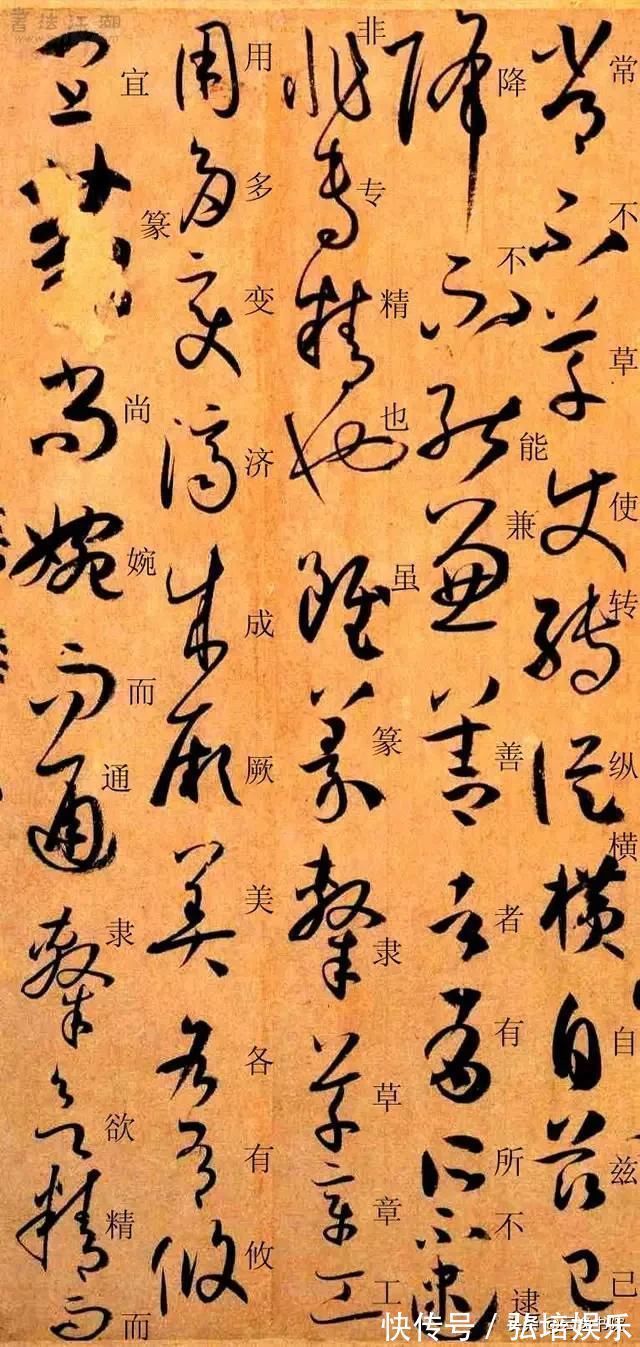 常不草使转纵横自兹己
降不能兼善者有所不逮
非专精也虽篆隶草章工
用多变济成厥美各有攸
宜篆尚婉而通隶欲精而
书法江湖
快传号 / 弘培娱乐